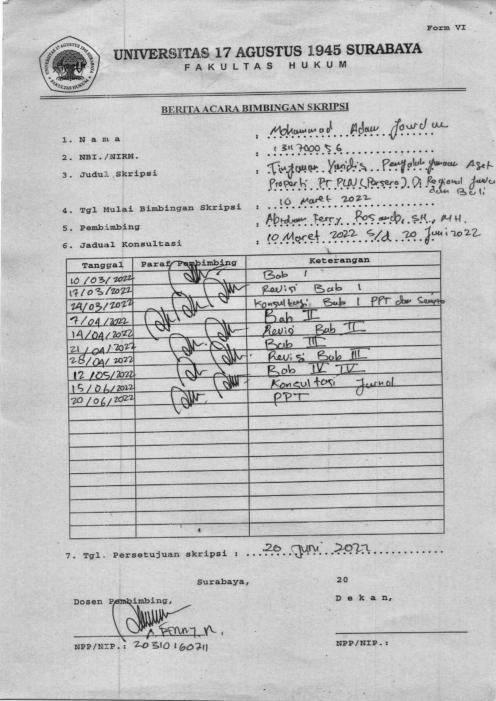 Form VI
UNIVERSITAS 17 AGUSTUS 1945 SURABAYA
FAKULTAS HUKUM
BERITA ACARA BIMBINGAN SKRIPSI
1. Nama : Mohammad Adam
2. NBI./NIRM. : 1311700056
3. Judul Skripsi : Tinjauan Yuridis Penyalahgunaan Aset
Properti PT PLN (Persero) Di Regional Jawa
dan Bali
4. Tgl Mulai Bimbingan Skripsi : 10 Maret 2022
5. Pembimbing : Abraham Ferry Rosando, SH., MH.
6. Jadual Konsultasi : 10 Maret 2022 S/d 20 Juni 2022
Tanggal Paraf Pembimbing Keterangan
10/03/2022 Bab 1
17/03/2022 Revisi Bab 1
24/03/2022 Konsultasi Bab 1 PPT dan
7/04/2022 Bab II
14/04/2022 Revisi Bab II
21/04/2022 Bab III
28/04/2022 Revisi Bab III
12/05/2022 Bab IV IV
15/06/2022 Konsultasi Jurnal
20/06/2022 PPT
7. Tgl. Persetujuan skripsi : 20 Juni 2022
Surabaya, 20
Dosen Pembimbing, Dekan,
NPP/NIP.: 20310160711 NPP/NIP.: